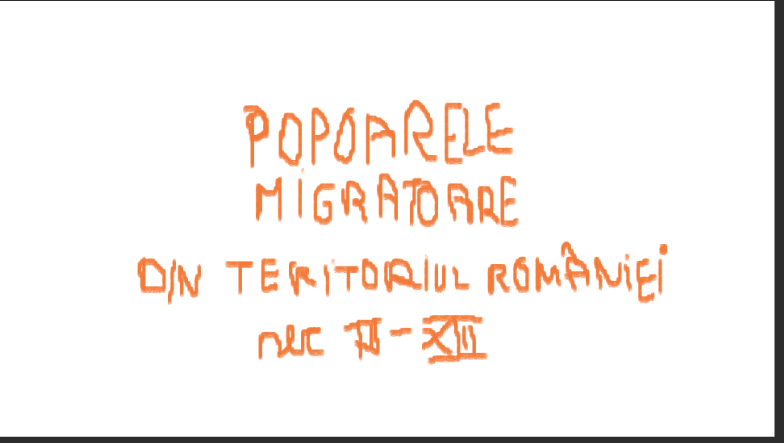 POPOARELE
MIGRATOARE
DIN TERITORIUL ROMÂNIEI
XIII